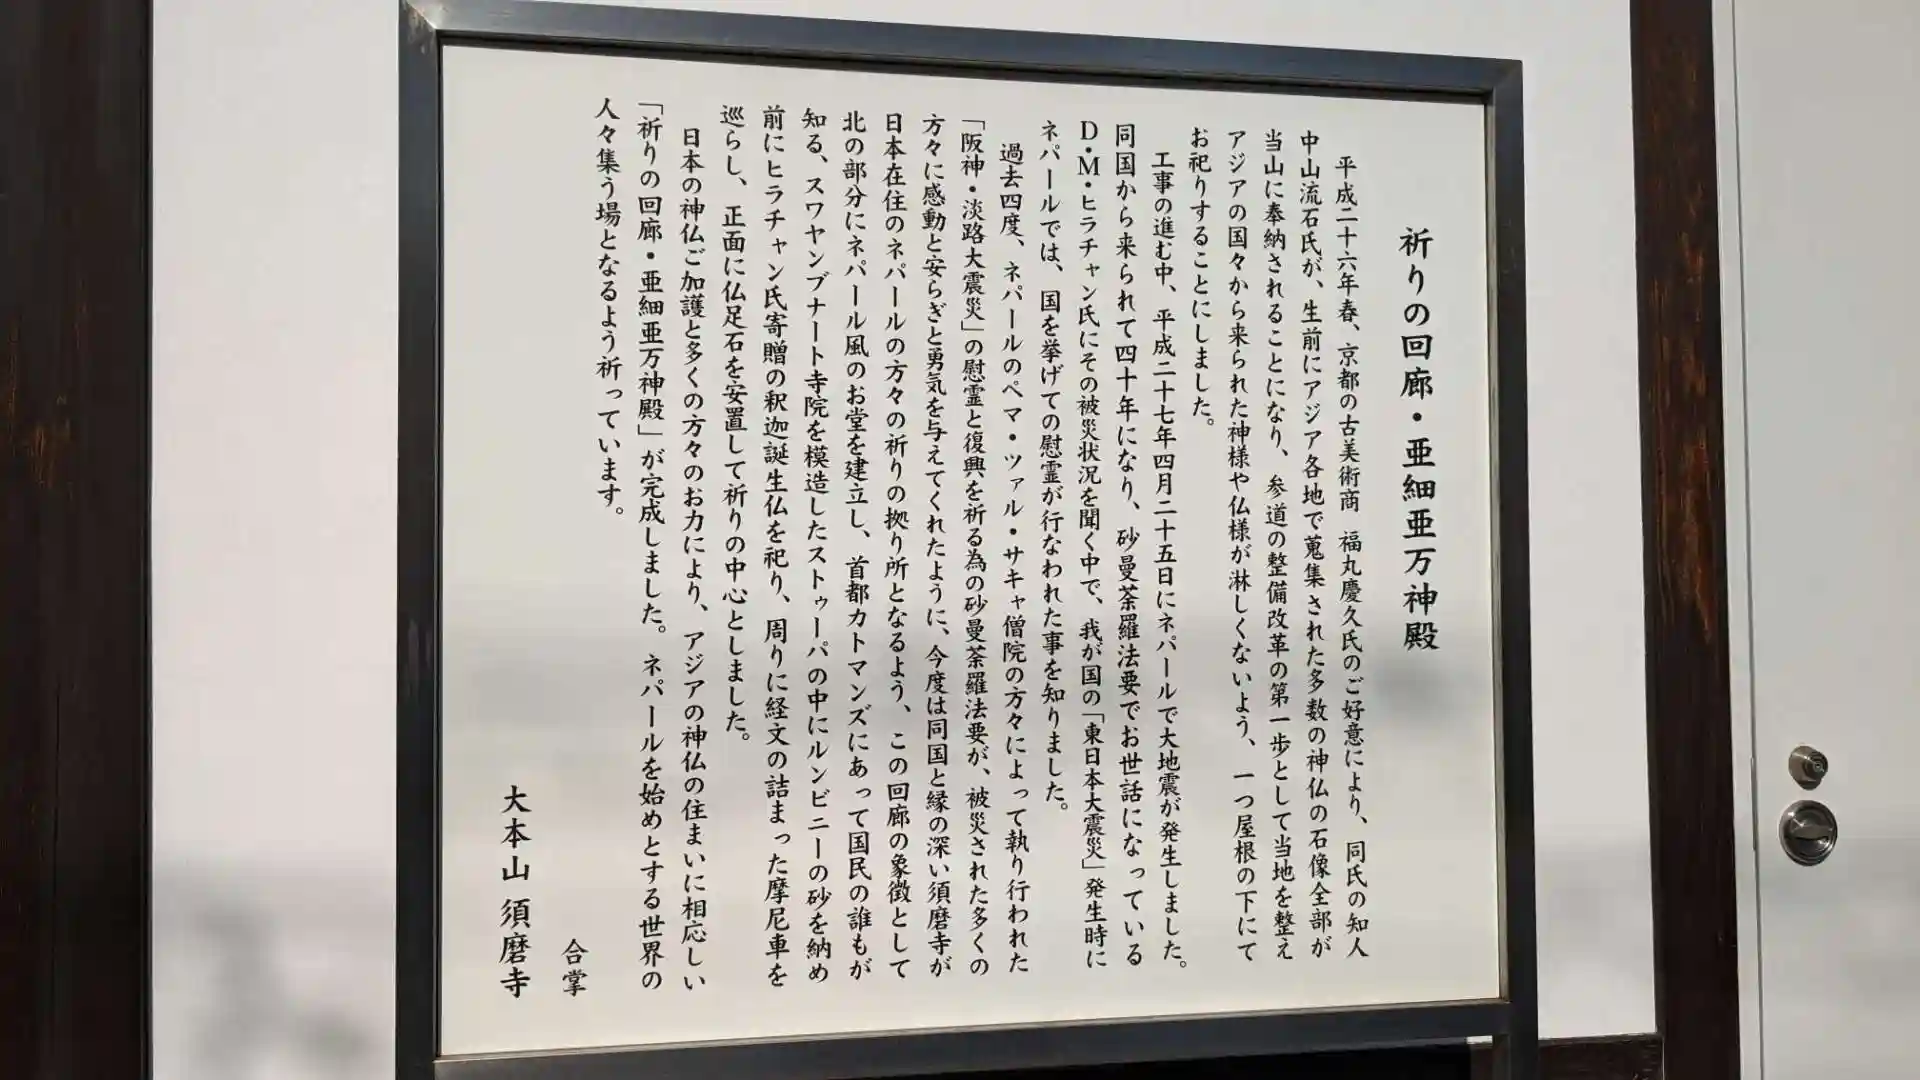 祈りの回廊・亜細亜万神殿
平成二十六年春、京都の古美術商　福丸慶久氏のご好意により、同氏の知人
中山流石氏が、生前にアジア各地で蒐集された多数の神仏の石像全部が
当山に奉納されることになり、参道の整備改革の第一歩として当地を整え
アジアの国々から来られた神様や仏様が淋しくないよう、一つ屋根の下にて
お祀りすることにしました。
工事の進む中、平成二十七年四月二十五日にネパールで大地震が発生しました。
同国から来られて四十年になり、砂曼荼羅法要でお世話になっている
D・M・ヒラチャン氏にその被災状況を聞く中で、我が国の「東日本大震災」発生時に
ネパールでは、国を挙げての慰霊が行なわれた事を知りました。
過去四度、ネパールのペマ・ツァル・サキャ僧院の方々によって執り行われた
「阪神・淡路大震災」の慰霊と復興を祈る為の砂曼荼羅法要が、被災された多くの
方々に感動と安らぎと勇気を与えてくれたように、今度は同国と縁の深い須磨寺が
日本在住のネパールの方々の祈りの拠り所となるよう、この回廊の象徴として
北の部分にネパール風のお堂を建立し、首都カトマンズにあって国民の誰もが
知る、スワヤンブナート寺院を模造したストゥーパの中にルンビニーの砂を納め
前にヒラチャン氏寄贈の釈迦誕生仏を祀り、周りに経文の詰まった摩尼車を
巡らし、正面に仏足石を安置して祈りの中心としました。
日本の神仏ご加護と多くの方々のお力により、アジアの神仏の住まいに相応しい
「祈りの回廊・亜細亜万神殿」が完成しました。ネパールを始めとする世界の
人々集う場となるよう祈っています。
合掌
大本山 須磨寺